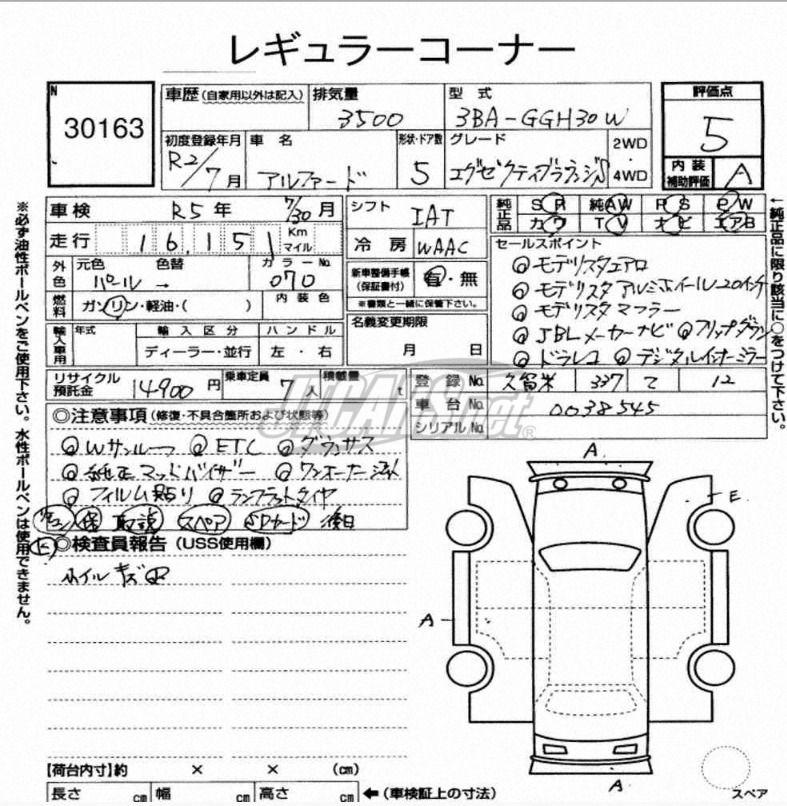 レギュラーコーナー
N
30163
車歴 (自家用以外は記入) 排気量 3500 型式 3BA-GGH30W
評価点 5
初度登録年月 R2/7月 車名 アルファード 形状・ドア数 5 グレード エグゼクティブラウンジS 2WD 4WD
内装補助評価 A
車検 R5年 7/30月
シフト IAT
純正品 SR 純AW PS PW
カワ TV ナビ エアB
走行 16,151 Km マイル
冷房 WAAC
セールスポイント
外色 元色 色替 カラーNo. パール → 070
新車整備手帳 (保証書付) 有・無
※書類と一緒に保管下さい。
◎モデリスタエアロ
◎モデリスタ アルミホイール20インチ
◎モデリスタ マフラー
◎JBLメーカーナビ ◎フリップダウン
◎ドラレコ ◎デジタルインナーミラー
燃料 ガソリン・軽油・( ) 内装色
名義変更期限 月 日
輸入車用 年式 輸入区分 ハンドル
ディーラー・並行 左・右
リサイクル預託金 14900円 乗車定員 7人 積載量 t
登録No. 久留米 337 て 12
車台No. 0038545
シリアルNo.
JPCARS.net®
◎注意事項 (修復・不具合箇所および状態等)
◎Wサンルーフ ◎ETC ◎グラスガス
◎純正マッドバイザー ◎ワンオーナー
◎フィルム貼り ◎ランフラットタイヤ
保 取説 スペア SDカード 後日
◎検査員報告 (USS使用欄)
ホイルキズ
A
E
A
A
【荷台内寸】約 × × (cm)
長さ cm 幅 cm 高さ cm ←(車検証上の寸法)
スペア
※必ず油性ボールペンをご使用下さい。水性ボールペンは使用できません。
←純正品に限り該当に○をつけて下さい。